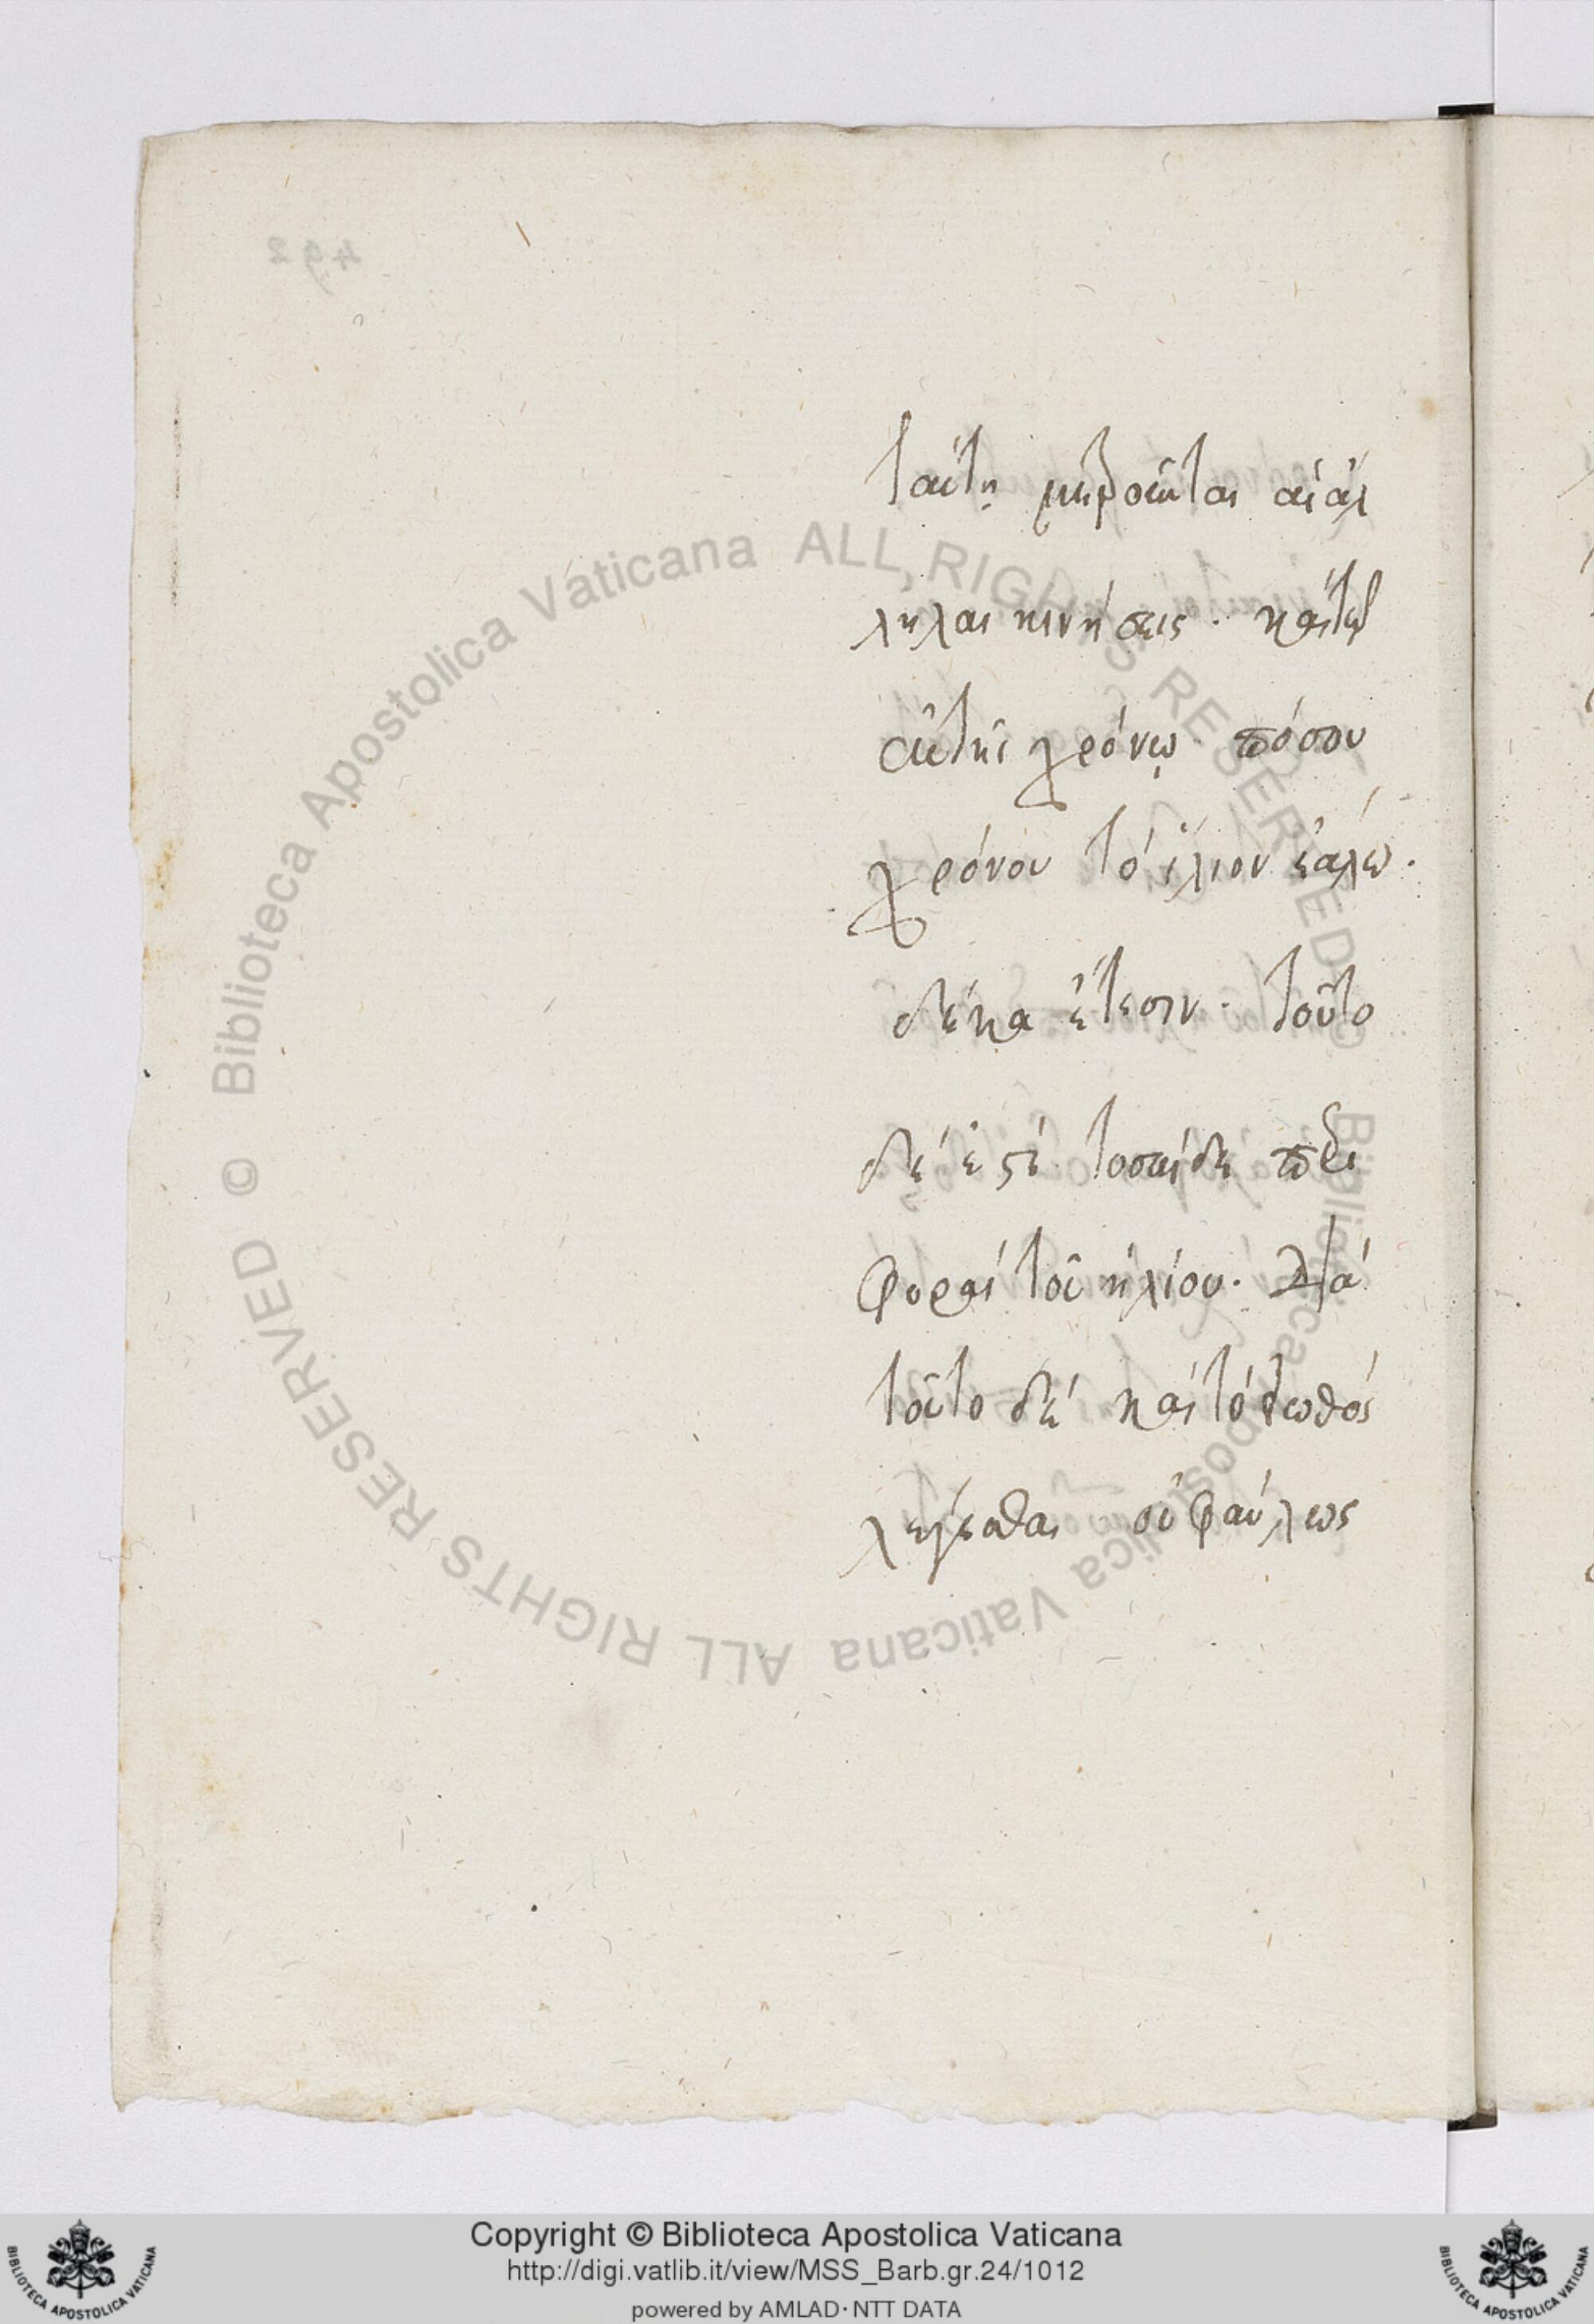 ταύτῃ μετροῦνται αἱ ἄλ
ληλαι κινήσεις· καὶ τῷ
αὐτῆς χρόνῳ πόσου
χρόνου τὸ ἴλιον ἑάλω.
δέκα ἔτεσιν. τοῦτο
δέ ἐστι τοσαίδε περι
φοραὶ τοῦ ἡλίου. διὰ
τοῦτο δὲ καὶ τὸ εἰωθὸς
λέγεσθαι οὐ φαύλως
© Biblioteca Apostolica Vaticana ALL RIGHTS RESERVED © Biblioteca Apostolica Vaticana ALL RIGHTS RESERVED
Copyright © Biblioteca Apostolica Vaticana
http://digi.vatlib.it/view/MSS_Barb.gr.24/1012
powered by AMLAD·NTT DATA
BIBLIOTECA APOSTOLICA VATICANA
BIBLIOTECA APOSTOLICA VATICANA